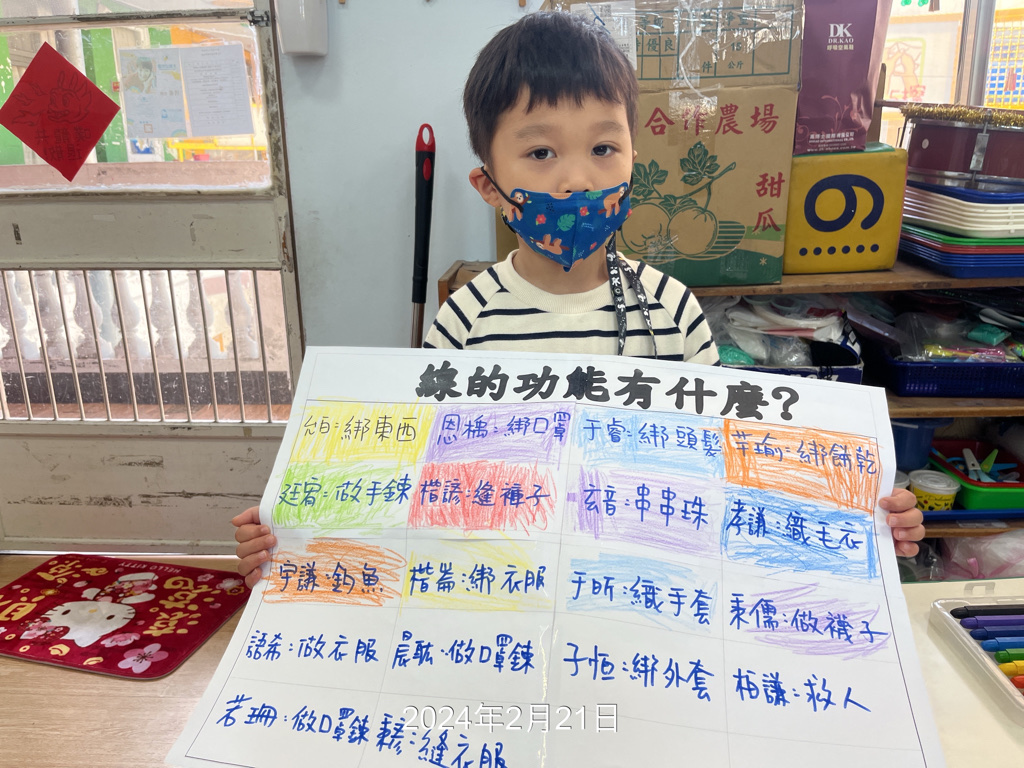 優良
件
公斤
DK
DR.KAO
合作農場
甜瓜
HELLO KITTY
線的功能有什麼?
綁東西
恩橋:綁口罩
于睿:綁頭髮
苹瑜:綁餅乾
廷宥:做手鍊
楷諺:縫褲子
玄音:串串珠
孝謙:織毛衣
宇謙:釣魚
楷崙:綁衣服
于昕:織手套
秉儒:做襪子
語希:做衣服
晨耘:做口罩鍊
子恒:綁外套
柏謙:救人
若珊:做口罩鍊
:縫衣服
2024年2月21日